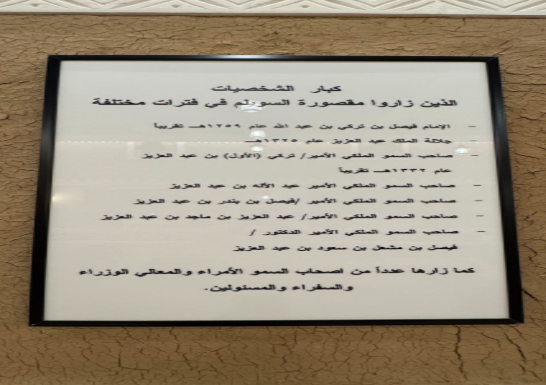 كبار الشخصيات
الذين زاروا مقصورة السويلم في فترات مختلفة
- الإمام فيصل بن تركي بن عبد الله عام ١٢٥٩هـ تقريباً
جلالة الملك عبد العزيز عام ١٣٢٥هـ
- صاحب السمو الملكي الأمير/ تركي (الأول) بن عبد العزيز
عام ١٣٣٢هـ تقريباً
- صاحب السمو الملكي الأمير عبد الأله بن عبد العزيز
- صاحب السمو الملكي الأمير /فيصل بن بندر بن عبد العزيز
- صاحب السمو الملكي الأمير/ عبد العزيز بن ماجد بن عبد العزيز
- صاحب السمو الملكي الأمير الدكتور /
فيصل بن مشعل بن سعود بن عبد العزيز
كما زارها عدداً من اصحاب السمو الأمراء والمعالي الوزراء
والسفراء والمسئولين.